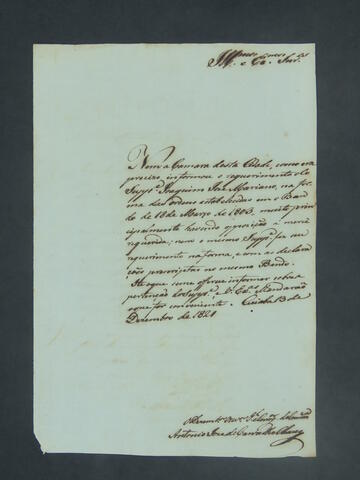 Ill.mos e Ex.mos Snr.es
Nem a Camara desta Cidade, como era
precizo, informou o requerimento do
Supp.e Joaquim Jose Mariano, na for-
ma das ordens estabelecidas em o Ban-
do de 18 de Março de 1803, muito prin-
cipalmente havendo opposição a mercê
requerida; nem o mesmo Supp.e fez seu
requerimento na forma, e com as declara-
ções prescriptas no mesmo Bando.
He o que se me offerece informar sobre a
pertenção do Supp.e, e V. Ex.as Mandarão
o que for conveniente. Cuiabá 13 de
Dezembro de 1821
Antonio Joze de Carvalho Chaves